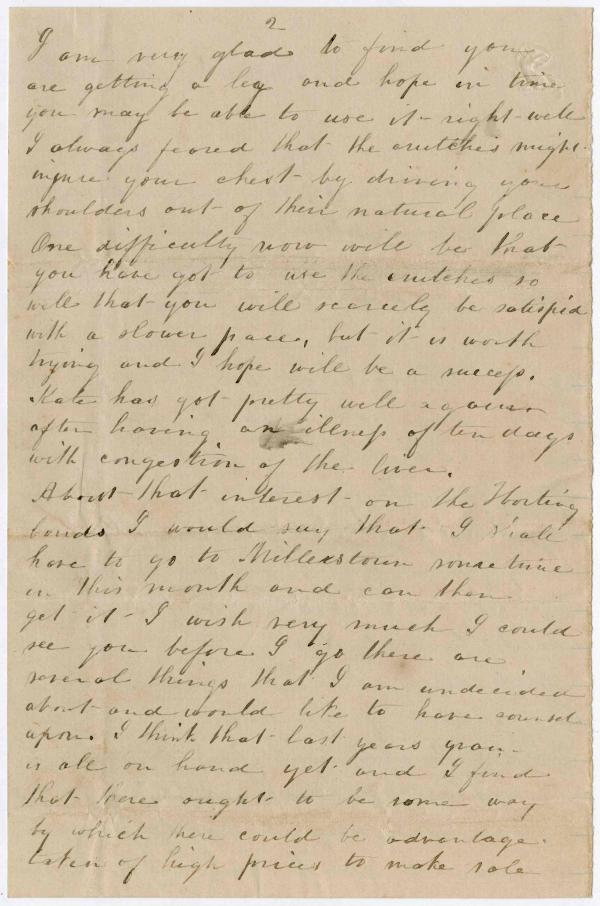 2
I am very glad to find you
are getting a leg and hope in time
you may be able to use it right well
I always feared that the crutches might
injure your chest by driving your
shoulders out of their natural place
One difficulty now will be that
you have got to use the crutches so
well that you will scarcely be satisfied
with a slower pace, but it is worth
trying and I hope will be a success.
Kate has got pretty well again
after having an illness of ten days
with congestion of the liver.
About that interest on the
bonds I would say that I shall
have to go to Millerstown sometime
in this month and can then
get it I wish very much I could
see you before I go there are
several things that I am undecided
about and would like to have counsel
upon. I think that last years grain
is all on hand yet and I find
that there ought to be some way
by which there could be advantage
taken of high prices to make sale